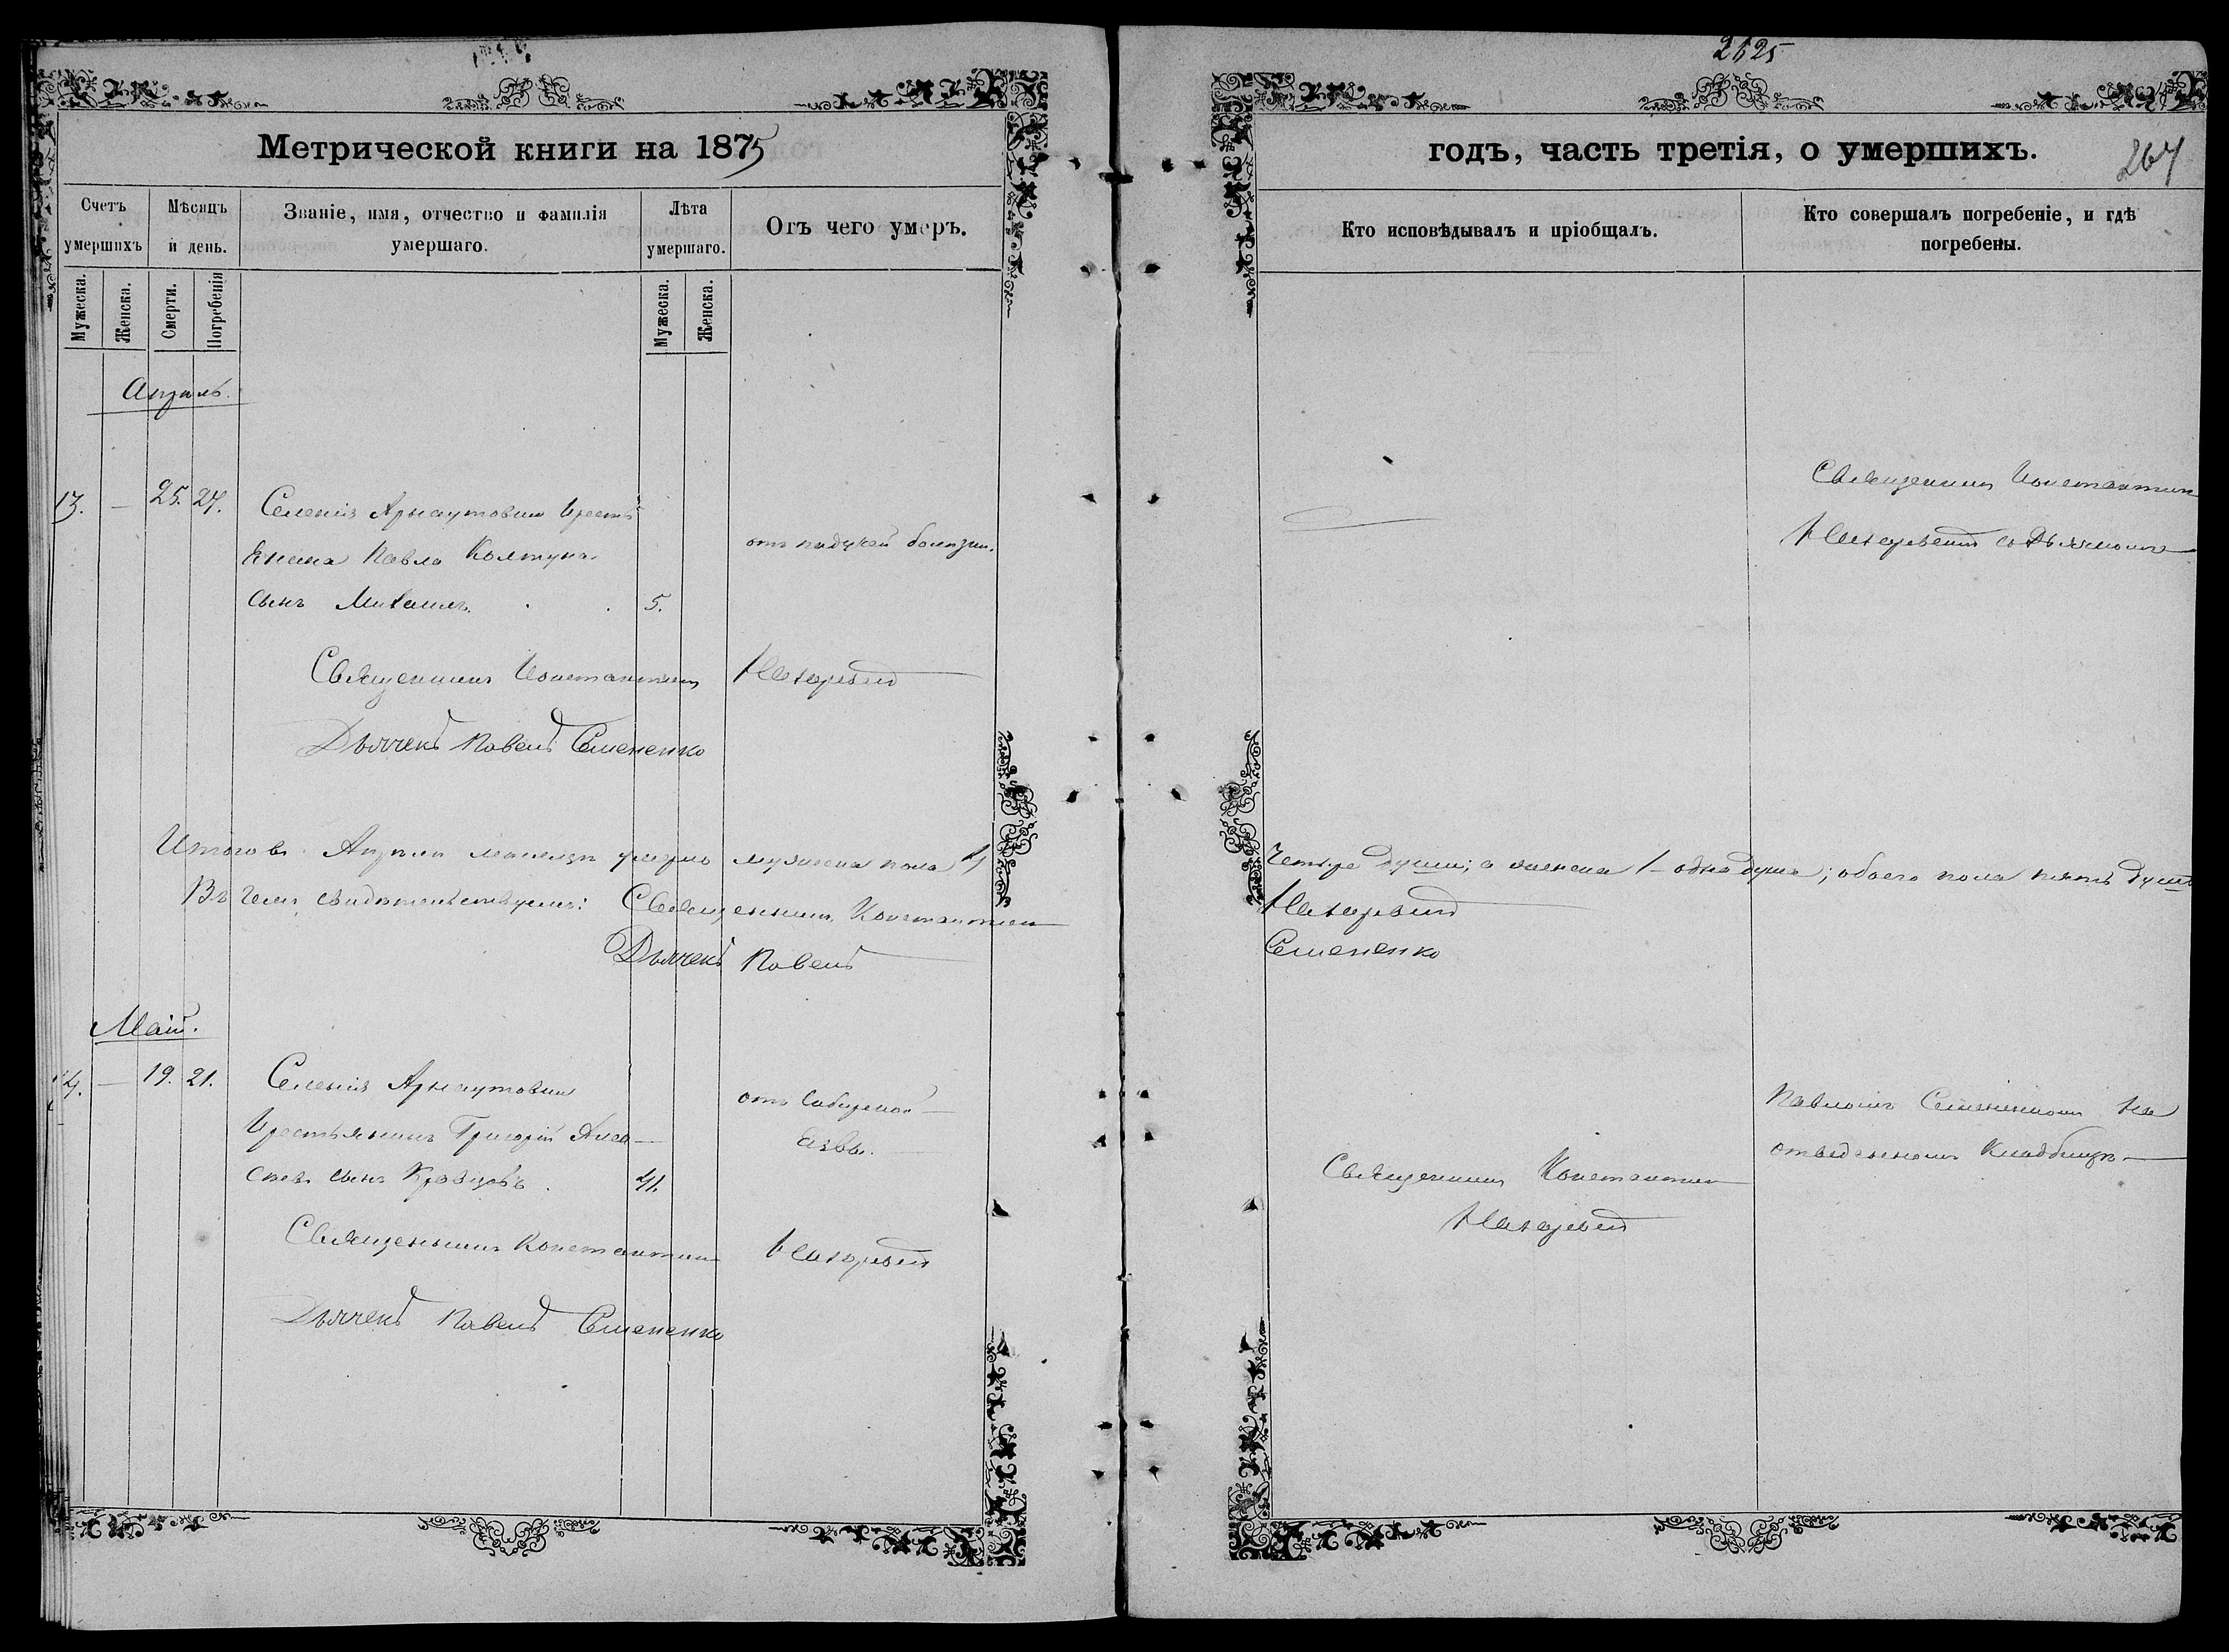 2525
Метрической книги на 1875
годъ, часть третія, о умершихъ.
264
Счетъ умершихъ
Мѣсяцъ и день.
Званіе, имя, отчество и фамилія умершаго.
Лѣта умершаго.
Отъ чего умеръ.
Кто исповѣдывалъ и пріобщалъ.
Кто совершалъ погребеніе, и гдѣ погребены.
Мужеска.
Женска.
Смерти.
Погребенія
Мужеска.
Женска.
Апрѣль.
13. — 25. 27. Селенія Арнаутовки Кресть
янина Павла Колтуна
сынъ Михаилъ. 5.
отъ падучей болѣзни.
Священникъ Константинъ
съ Дьячкомъ
Священникъ Константинъ
Дьячекъ Павелъ Семененко
Итого въ Апрѣлѣ мѣсяцѣ умерло мужеска пола 4
четыре души; а женска 1 – одна душа; обоего пола пять душъ
Въ чемъ свидѣтельствуемъ: Священникъ Константинъ
Дьячекъ Павелъ
Семененко
Май.
14. — 19. 21. Селенія Арнаутовки
Крестьянинъ Григорій
сынъ Кравцовъ. 41.
отъ Сибирской
язвы.
Священникъ Константинъ
Павломъ Семененкомъ на
отведенномъ Кладбищѣ
Священникъ Константинъ
Дьячекъ Павелъ Семененко